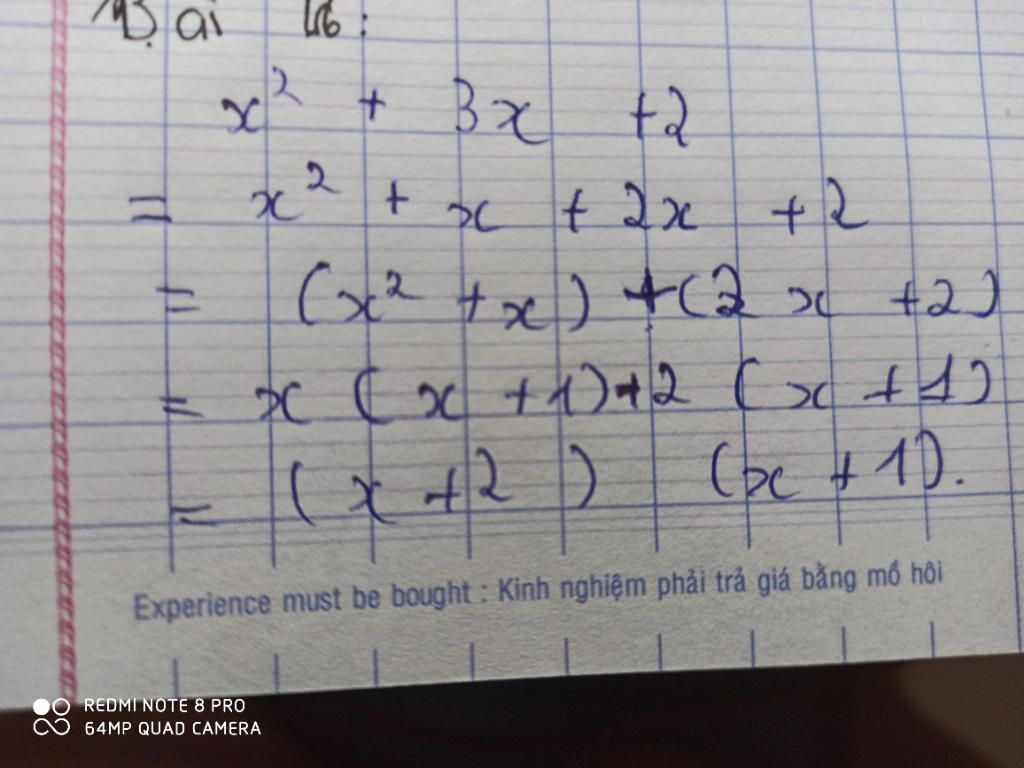 Bài 46:
x² + 3x + 2
= x² + x + 2x + 2
= (x² + x) + (2x + 2)
= x (x + 1) + 2 (x + 1)
= (x + 2) (x + 1).
Experience must be bought : Kinh nghiệm phải trả giá bằng mồ hôi
REDMI NOTE 8 PRO
64MP QUAD CAMERA